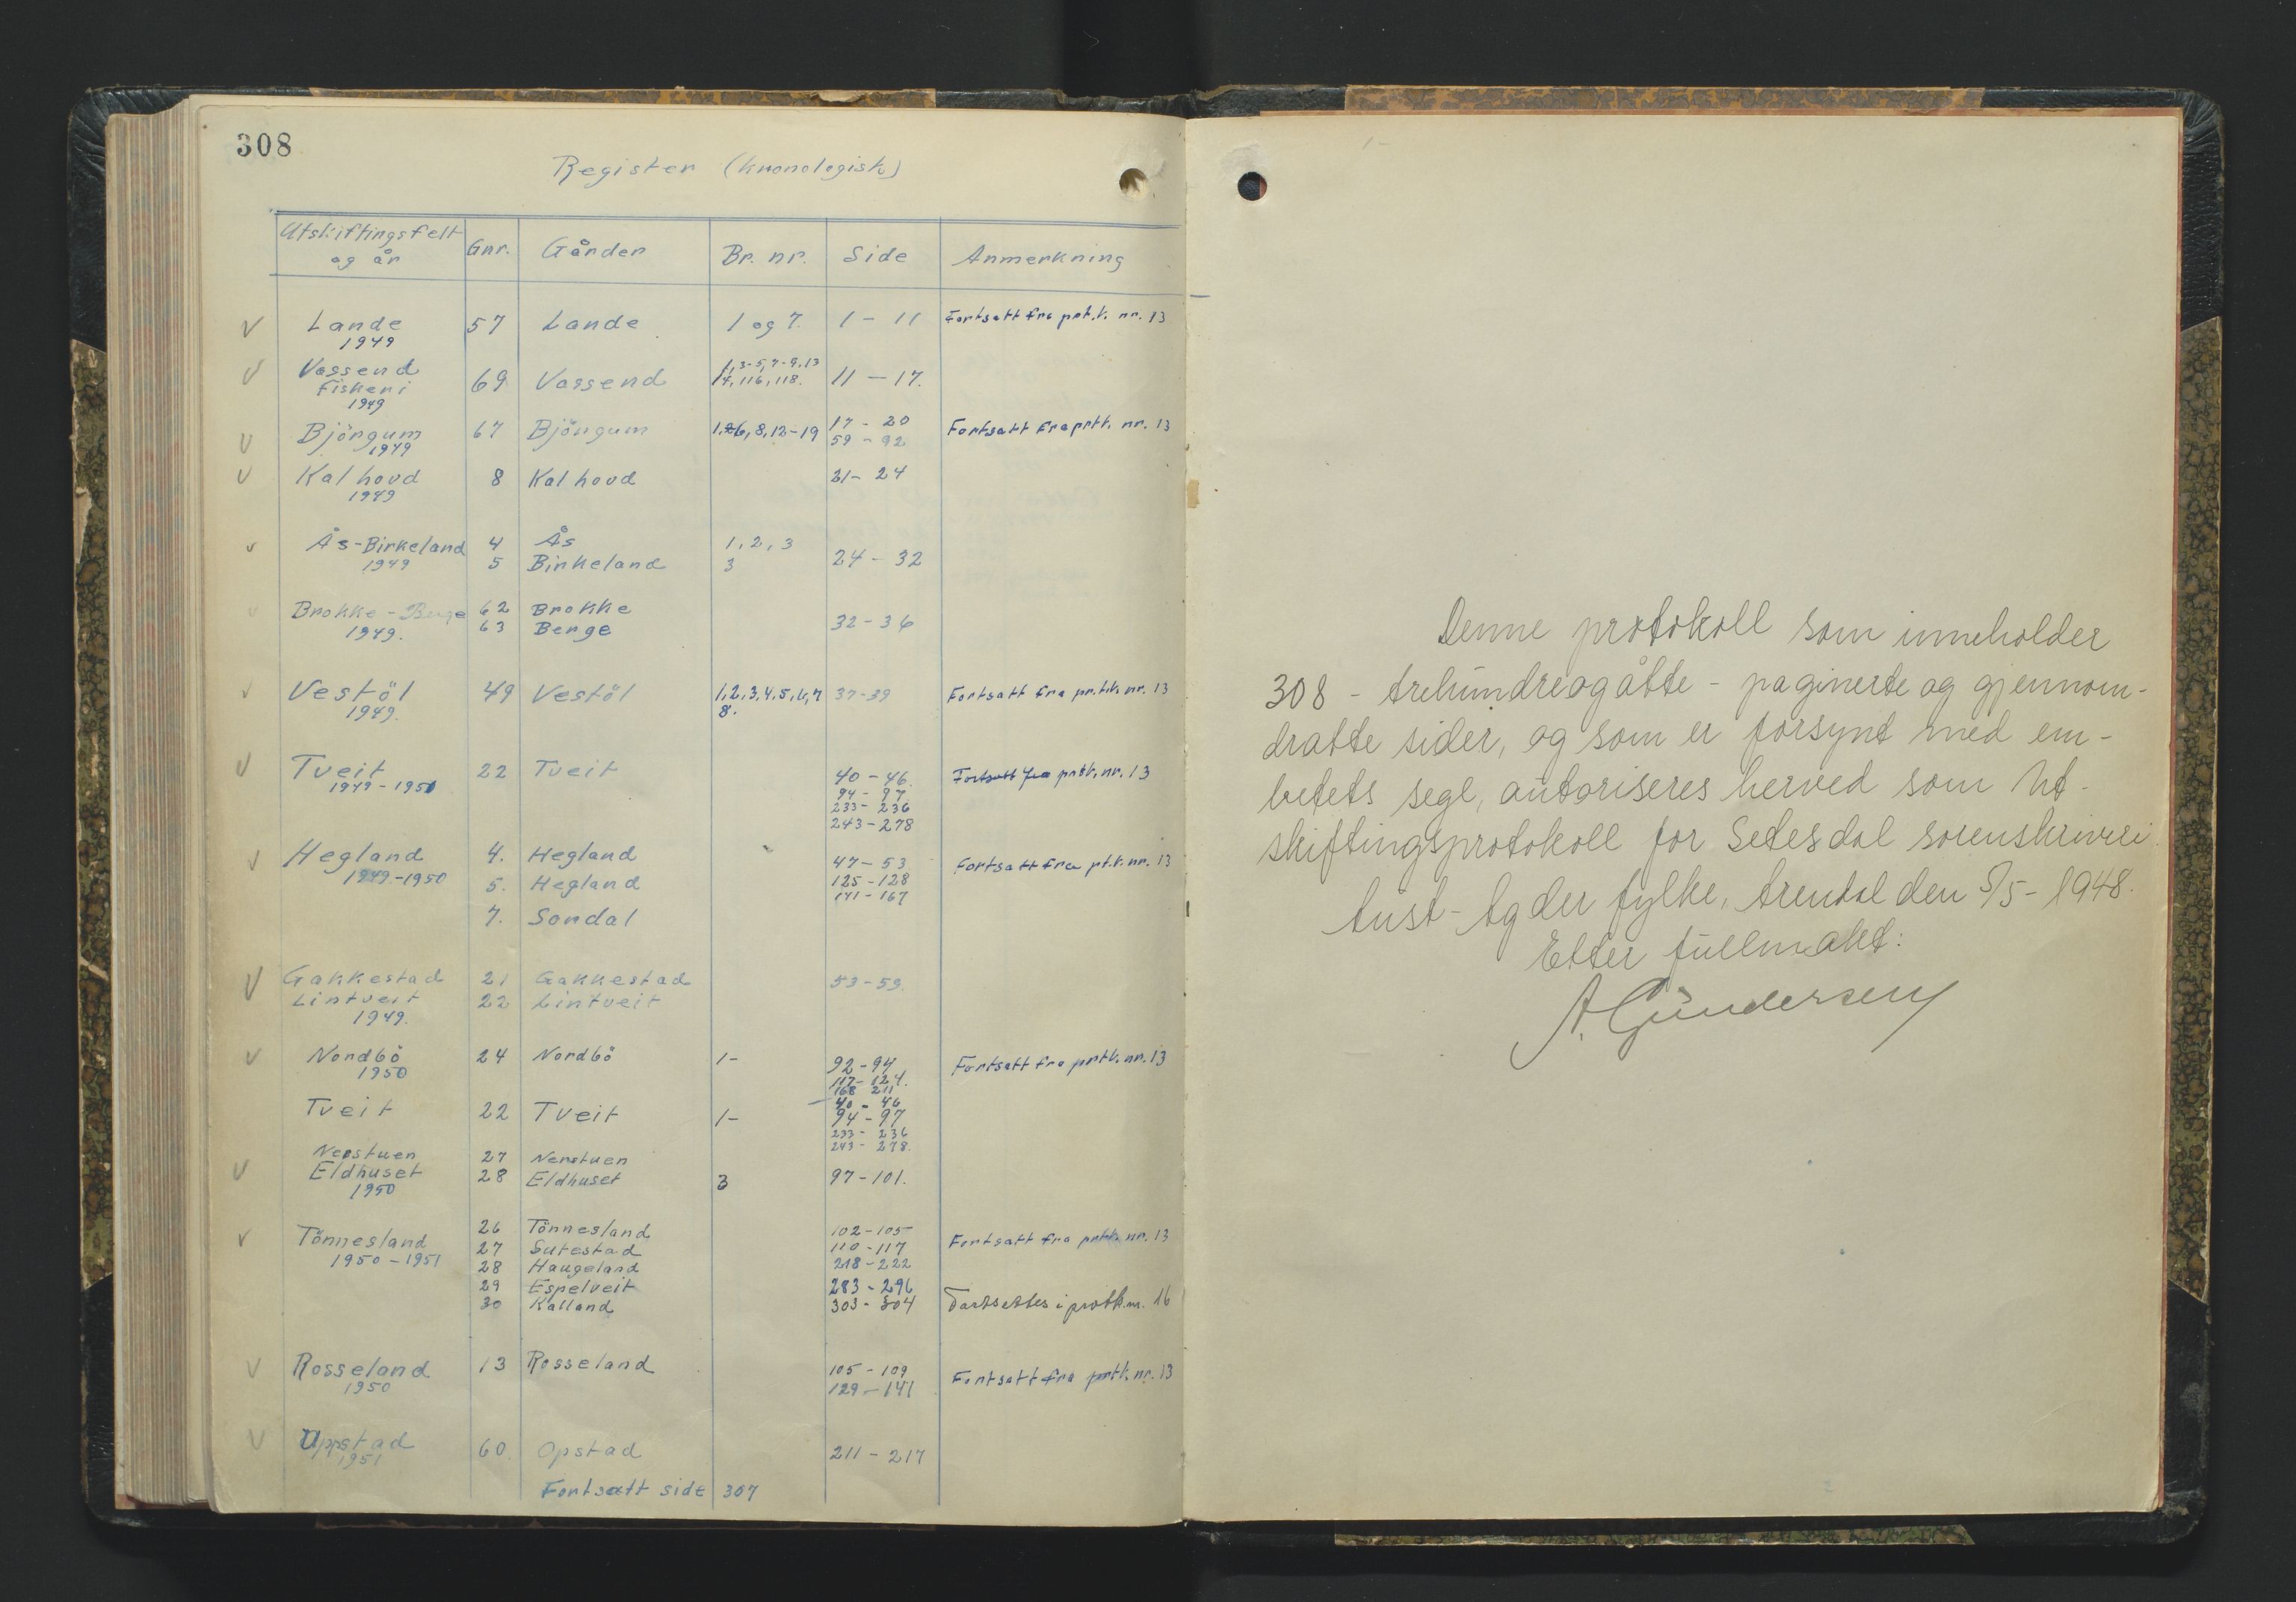 308
Register (kronologisk)
Utskiftingsfelt og år Gnr. Gårder Br. nr. Side Anmerkning
V Lande 57 Lande 1 og 7. 1 - 11 Fortsatt fra prt.k. nr. 13
1949
V Vassend Fiskeri 69 Vassend 1,3-5,7-9,13 11 - 17.
1949 14,116,118.
V Björgum 67 Björgum 1,6,8,12-19 17 - 20 Fortsatt fra prtk. nr. 13
1949 59 - 92
V Kalhovd 8 Kalhovd 21 - 24
1949
v Ås-Birkeland 4 Ås 1, 2, 3 24 - 32
1949 5 Birkeland 3
v Brokke - Berge 62 Brokke 32 - 36
1949. 63 Berge
v Vestöl 49 Vestöl 1,2,3,4,5,6,7 37-39 Fortsatt fra prtk. nr. 13
1949. 8.
V Tveit 22 Tveit 40 - 46. Fortsatt fra prtk. nr. 13
1949 - 1950 94 - 97
233 - 236
243 - 278
v Hegland 4. Hegland 47 - 53 Fortsatt fra pt.k. nr. 13
1949.-1950 5. Hegland 125 - 128
141 - 167
7. Sordal
V Gakkestad 21 Gakkestad 53 - 59.
Lintveit 22 Lintveit
1949.
v Nordbö 24 Nordbö 1- 92 - 94 Fortsatt fra prtk. nr. 13
1950 117 - 124.
168 211
40 - 46
Tveit 22 Tveit 1- 94 - 97
233 - 236
243 - 278.
Nerstuen 27 Nerstuen
V Eldhuset 28 Eldhuset 3 97 - 101.
1950
v Tönnesland 26 Tönnesland 102 - 105 Fortsatt fra prtk. nr. 13
1950 - 1951 27 Sutestad 110 - 117
28 Haugeland 218 - 222
29 Espelveit 283 - 296
30 Kalland 303 - 304 Fortsettes i protk. nr. 16
V Rosseland 13 Rosseland 105 - 109 Fortsatt fra prtk. nr. 13
1950 129 - 141
V Uppstad 60. Opstad 211 - 217
1951
Fortsatt side 307
Denne protokoll som inneholder
308 - trehundreogåtte - paginerte og gjennom-
dratte sider, og som er forsynt med em-
betets segl, autoriseres herved som Ut-
skiftingsprotokoll for Setesdal sorenskriveri.
Aust-Agder fylke, Arendal den 5/5 - 1948.
Etter fullmakt:
A. Gundersen